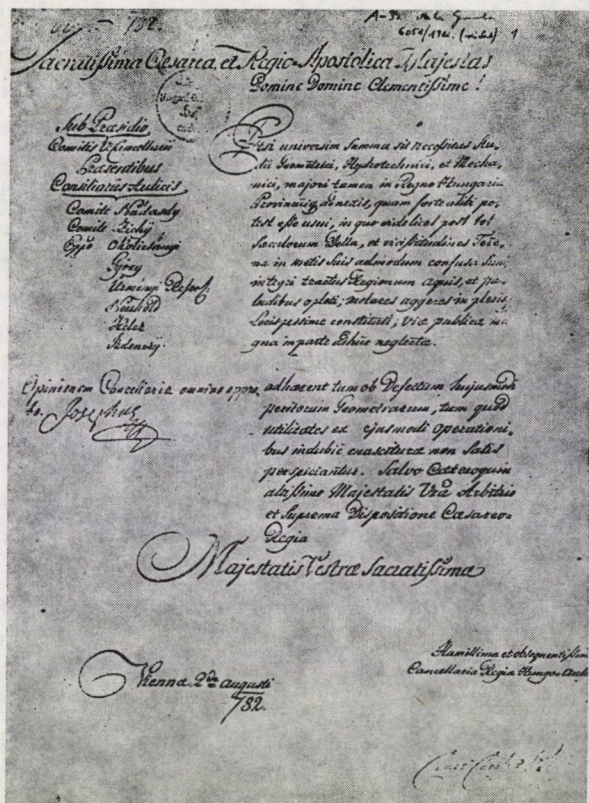 782.
6050/
1
Sacratissima Cæsarea, et Regio-Apostolica Majestas
Domine Domine Clementissime!
Sub Præsidio
Comitis
Præsentibus
Consiliariis Aulicis
Comite Nádasdy
Comite Zichÿ
Győry
Ürményi Refer.
Neühold
Etsi universim summa sit necessitas Stu-
dii Geometrici, Hydrotechnici, et Mecha-
nici, majori tamen in Regno Hungariæ
Provinciisq annexis, quam forte alibi po-
test esse usui, in quo videlicet post tot
sæculorum Bella, et vicissitudines Terre-
na in metis suis admodum confusa sunt,
integri tractus Regionum aquis, et pa-
ludibus opleti, molares aggeres in plerisq
Locis pessime constituti, viæ publicæ ma-
gna in parte adhuc neglectæ.
Opinionem Cancellariæ omnino appro-
bo. Josephus
adhærent tum ob Defectum hujusmodi
peritorum Geometrarum, tum quod
utilitates ex ejusmodi operationi-
bus indubie enascituræ non satis
perspiciantur. Salvo Cæteroquin
altissimo Majestatis Vræ Arbitrio
et Suprema Dispositione Cæsareo-
Regia
Majestatis Vestræ Sacratissimæ
Viennæ 2da Augusti
782.
Humillima et obsequentissim
Cancellaria Regia Hungo-Aulic